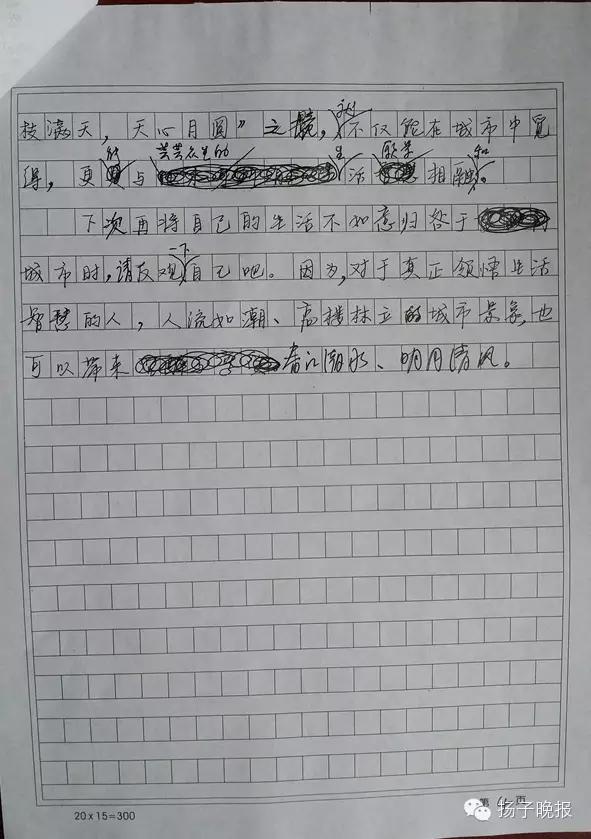 枝满天，天心月圆”之境，这不仅能在城市中觅
得，更能与芸芸众生的生活相融和。
下次再将自己的生活不如意归咎于
城市时,请反观一下自己吧。因为,对于真正领悟生活
智慧的人，人流如潮、高楼林立的城市景象,也
可以带来春江潮水、明月清风。
20×15=300
第 4 页
扬子晚报